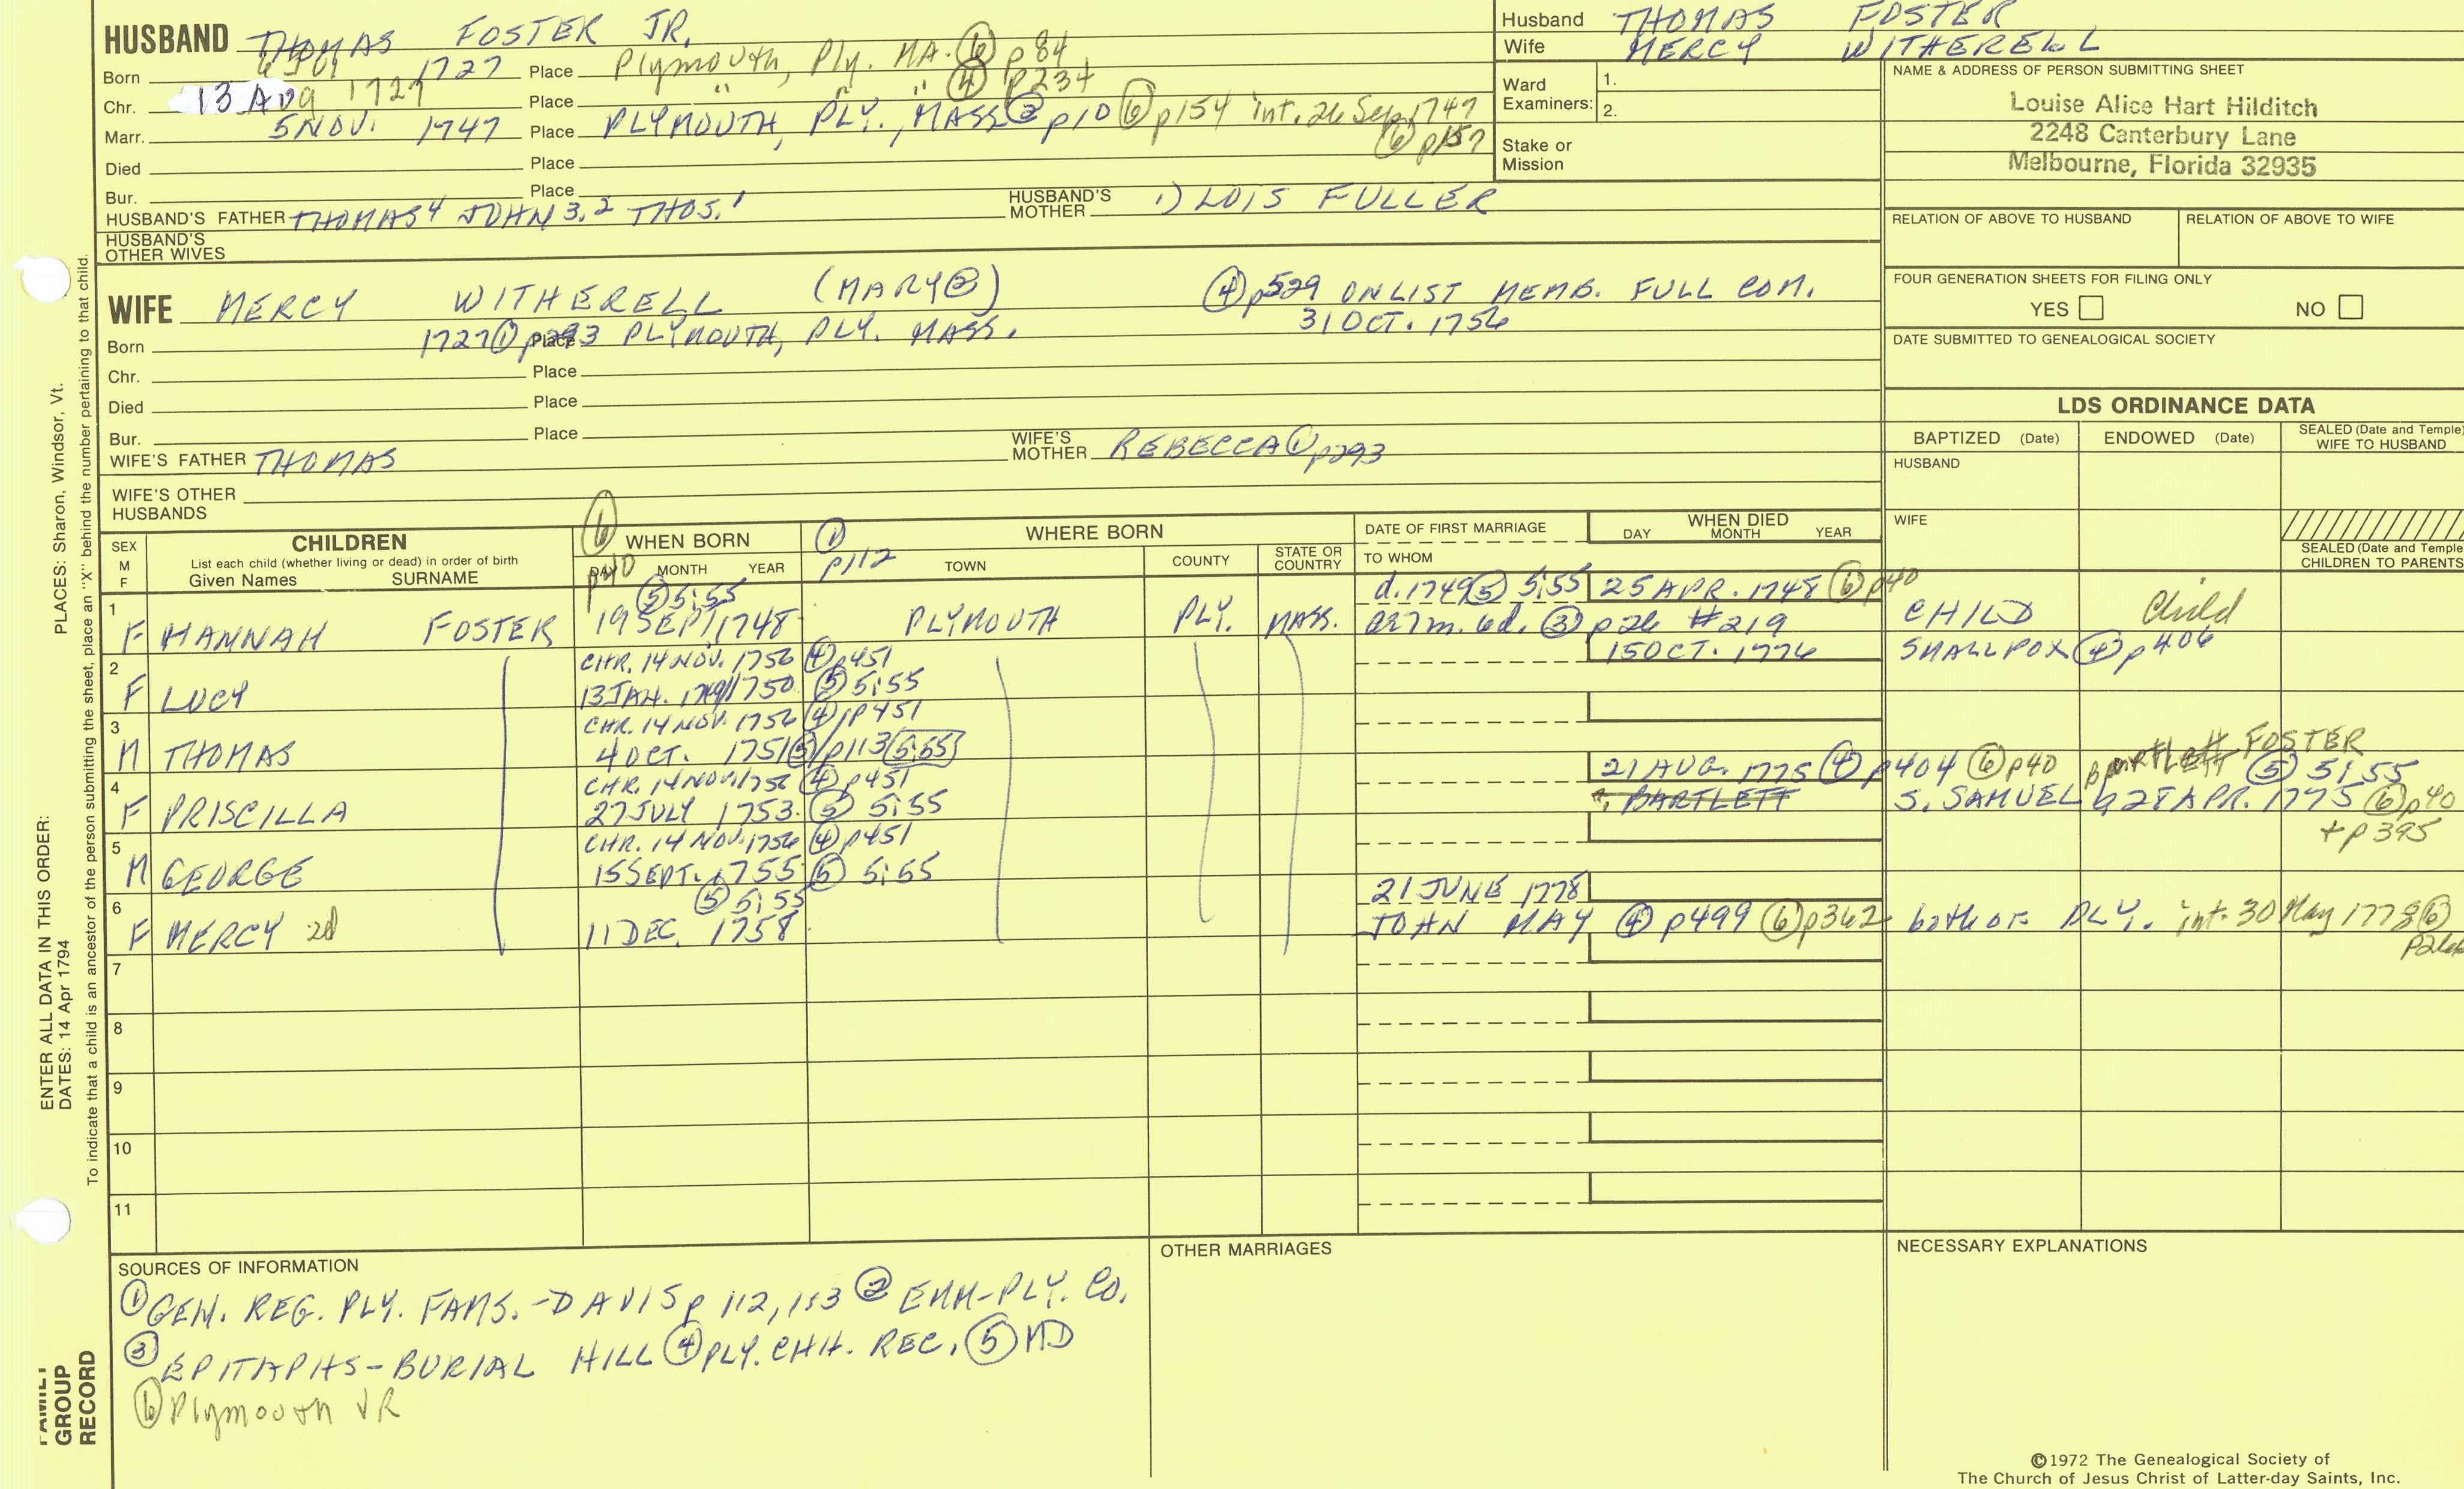 HUSBAND THOMAS FOSTER JR.
Born 1727 Place Plymouth, Ply. MA. ⑥ p 84
Chr. 13 Aug 1727 Place " " " ④ p234
Marr. 5 NOV. 1747 Place PLYMOUTH, PLY., MASS ② p10 ⑥ p154 int. 26 Sep 1747
⑥ p157
Died Place
Bur. Place
HUSBAND'S FATHER THOMAS4 JOHN3,2 THOS.1 HUSBAND'S MOTHER 1) LOIS FULLER
HUSBAND'S OTHER WIVES
WIFE MERCY WITHERELL (MARY②) ④ p529 ON LIST MEMB. FULL COM.
31 OCT. 1756
Born 1727 ① p293 Place PLYMOUTH, PLY. MASS.
Chr. Place
Died Place
Bur. Place
WIFE'S FATHER THOMAS WIFE'S MOTHER REBECCA ① p293
WIFE'S OTHER HUSBANDS
Husband THOMAS FOSTER
Wife MERCY WITHERELL
Ward Examiners: 1.
2.
Stake or Mission
NAME & ADDRESS OF PERSON SUBMITTING SHEET
Louise Alice Hart Hilditch
2248 Canterbury Lane
Melbourne, Florida 32935
RELATION OF ABOVE TO HUSBAND RELATION OF ABOVE TO WIFE
FOUR GENERATION SHEETS FOR FILING ONLY
YES NO
DATE SUBMITTED TO GENEALOGICAL SOCIETY
LDS ORDINANCE DATA
BAPTIZED (Date) ENDOWED (Date) SEALED (Date and Temple) WIFE TO HUSBAND
HUSBAND
WIFE
SEALED (Date and Temple)
CHILDREN TO PARENTS
SEX M F
CHILDREN
List each child (whether living or dead) in order of birth
Given Names SURNAME
⑥ p40 WHEN BORN
DAY MONTH YEAR
① p112 WHERE BORN
TOWN COUNTY STATE OR COUNTRY
DATE OF FIRST MARRIAGE
TO WHOM
WHEN DIED
DAY MONTH YEAR
⑤ 5:55 d. 1749 ⑤ 5:55 25 APR. 1748 ⑥ p40
1 F HANNAH FOSTER 19 SEPT. 1748 PLYMOUTH PLY. MASS. ae 7m. 6d. ③ p26 #219 CHILD Child
CHR. 14 NOV. 1756 ④ p451 15 OCT. 1776 SMALLPOX ④ p406
2 F LUCY 13 JAN. 1749/1750 ⑤ 5:55
CHR. 14 NOV. 1756 ④ p451
3 M THOMAS 4 OCT. 1751 ⑤ p113 5:55
CHR. 14 NOV. 1756 ④ p451 21 AUG. 1775 ④ p404 ⑥ p40 BARTLETT FOSTER ⑤ 5:55
4 F PRISCILLA 27 JULY 1753 ⑤ 5:55 BARTLETT S. SAMUEL b 28 APR. 1775 ⑥ p40
+ p 395
CHR. 14 NOV. 1756 ④ p451
5 M GEORGE 15 SEPT. 1755 ⑤ 5:55
⑤ 5:55 21 JUNE 1778
6 F MERCY 2d 11 DEC. 1758 JOHN MAY ④ p499 ⑥ p362 both of PLY. int. 30 May 1778 ⑥
7
8
9
10
11
SOURCES OF INFORMATION
① GEN. REG. PLY. FAMS. - DAVIS p 112, 113 ② EMM-PLY. CO.
③ EPITAPHS - BURIAL HILL ④ PLY. CHH. REC. ⑤ MD
⑥ Plymouth VR
OTHER MARRIAGES
NECESSARY EXPLANATIONS
©1972 The Genealogical Society of
The Church of Jesus Christ of Latter-day Saints, Inc.
ENTER ALL DATA IN THIS ORDER:
DATES: 14 Apr 1794 PLACES: Sharon, Windsor, Vt.
To indicate that a child is an ancestor of the person submitting the sheet, place an "X" behind the number pertaining to that child.
FAMILY
GROUP
RECORD